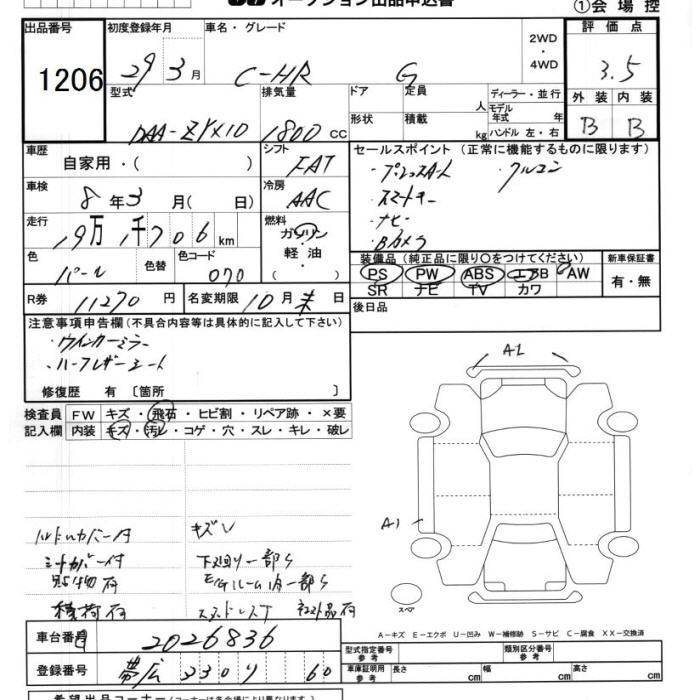 オークション出品申込書
①会場控
出品番号
1206
初度登録年月
29 3月
車名・グレード
C-HR G
2WD・4WD
評価点
3.5
外装 内装
B B
型式
DAA-ZYX10
排気量
1800cc
ドア
形状
定員 人
積載 kg
ディーラー・並行
モデル年式 年式
ハンドル 左・右
車歴
自家用・( )
シフト
FAT
車検
8年3月( 日)
冷房
AAC
走行
19万1千706km
燃料
ガソリン
軽油
( )
色
パール
色替
色コード
070
R券
11270円
名変期限 10月末日
セールスポイント (正常に機能するものに限ります)
・スマートキー
・ナビ
・Bカメラ
装備品 (純正品に限り○をつけてください)
PS PW ABS エアB AW
SR ナビ TV カワ
新車保証書
有・無
後日品
注意事項申告欄 (不具合内容等は具体的に記入して下さい)
・ウインカーミラー
・ハーフレザーシート
修復歴 有 〔箇所 〕
検査員記入欄
FW キズ・飛石・ヒビ割・リペア跡・×要
内装 キズ・汚レ・コゲ・穴・スレ・キレ・破レ
A1
A1
スペア
ハンドルカバー付 キズU
シートカバー付 下廻り一部S
貼物有 E/Gルーム内一部S
積荷有 スタッドレスT 社外品有
A-キズ E-エクボ U-凹み W-補修跡 S-サビ C-腐食 XX-交換済
車台番号
2026836
登録番号
帯広 330 リ 60
型式指定番号 参考
類別区分番号 参考
車庫証明用 参考
長さ cm
幅 cm
高さ cm
希望出品コーナー (コーナーは各会場により異なります)